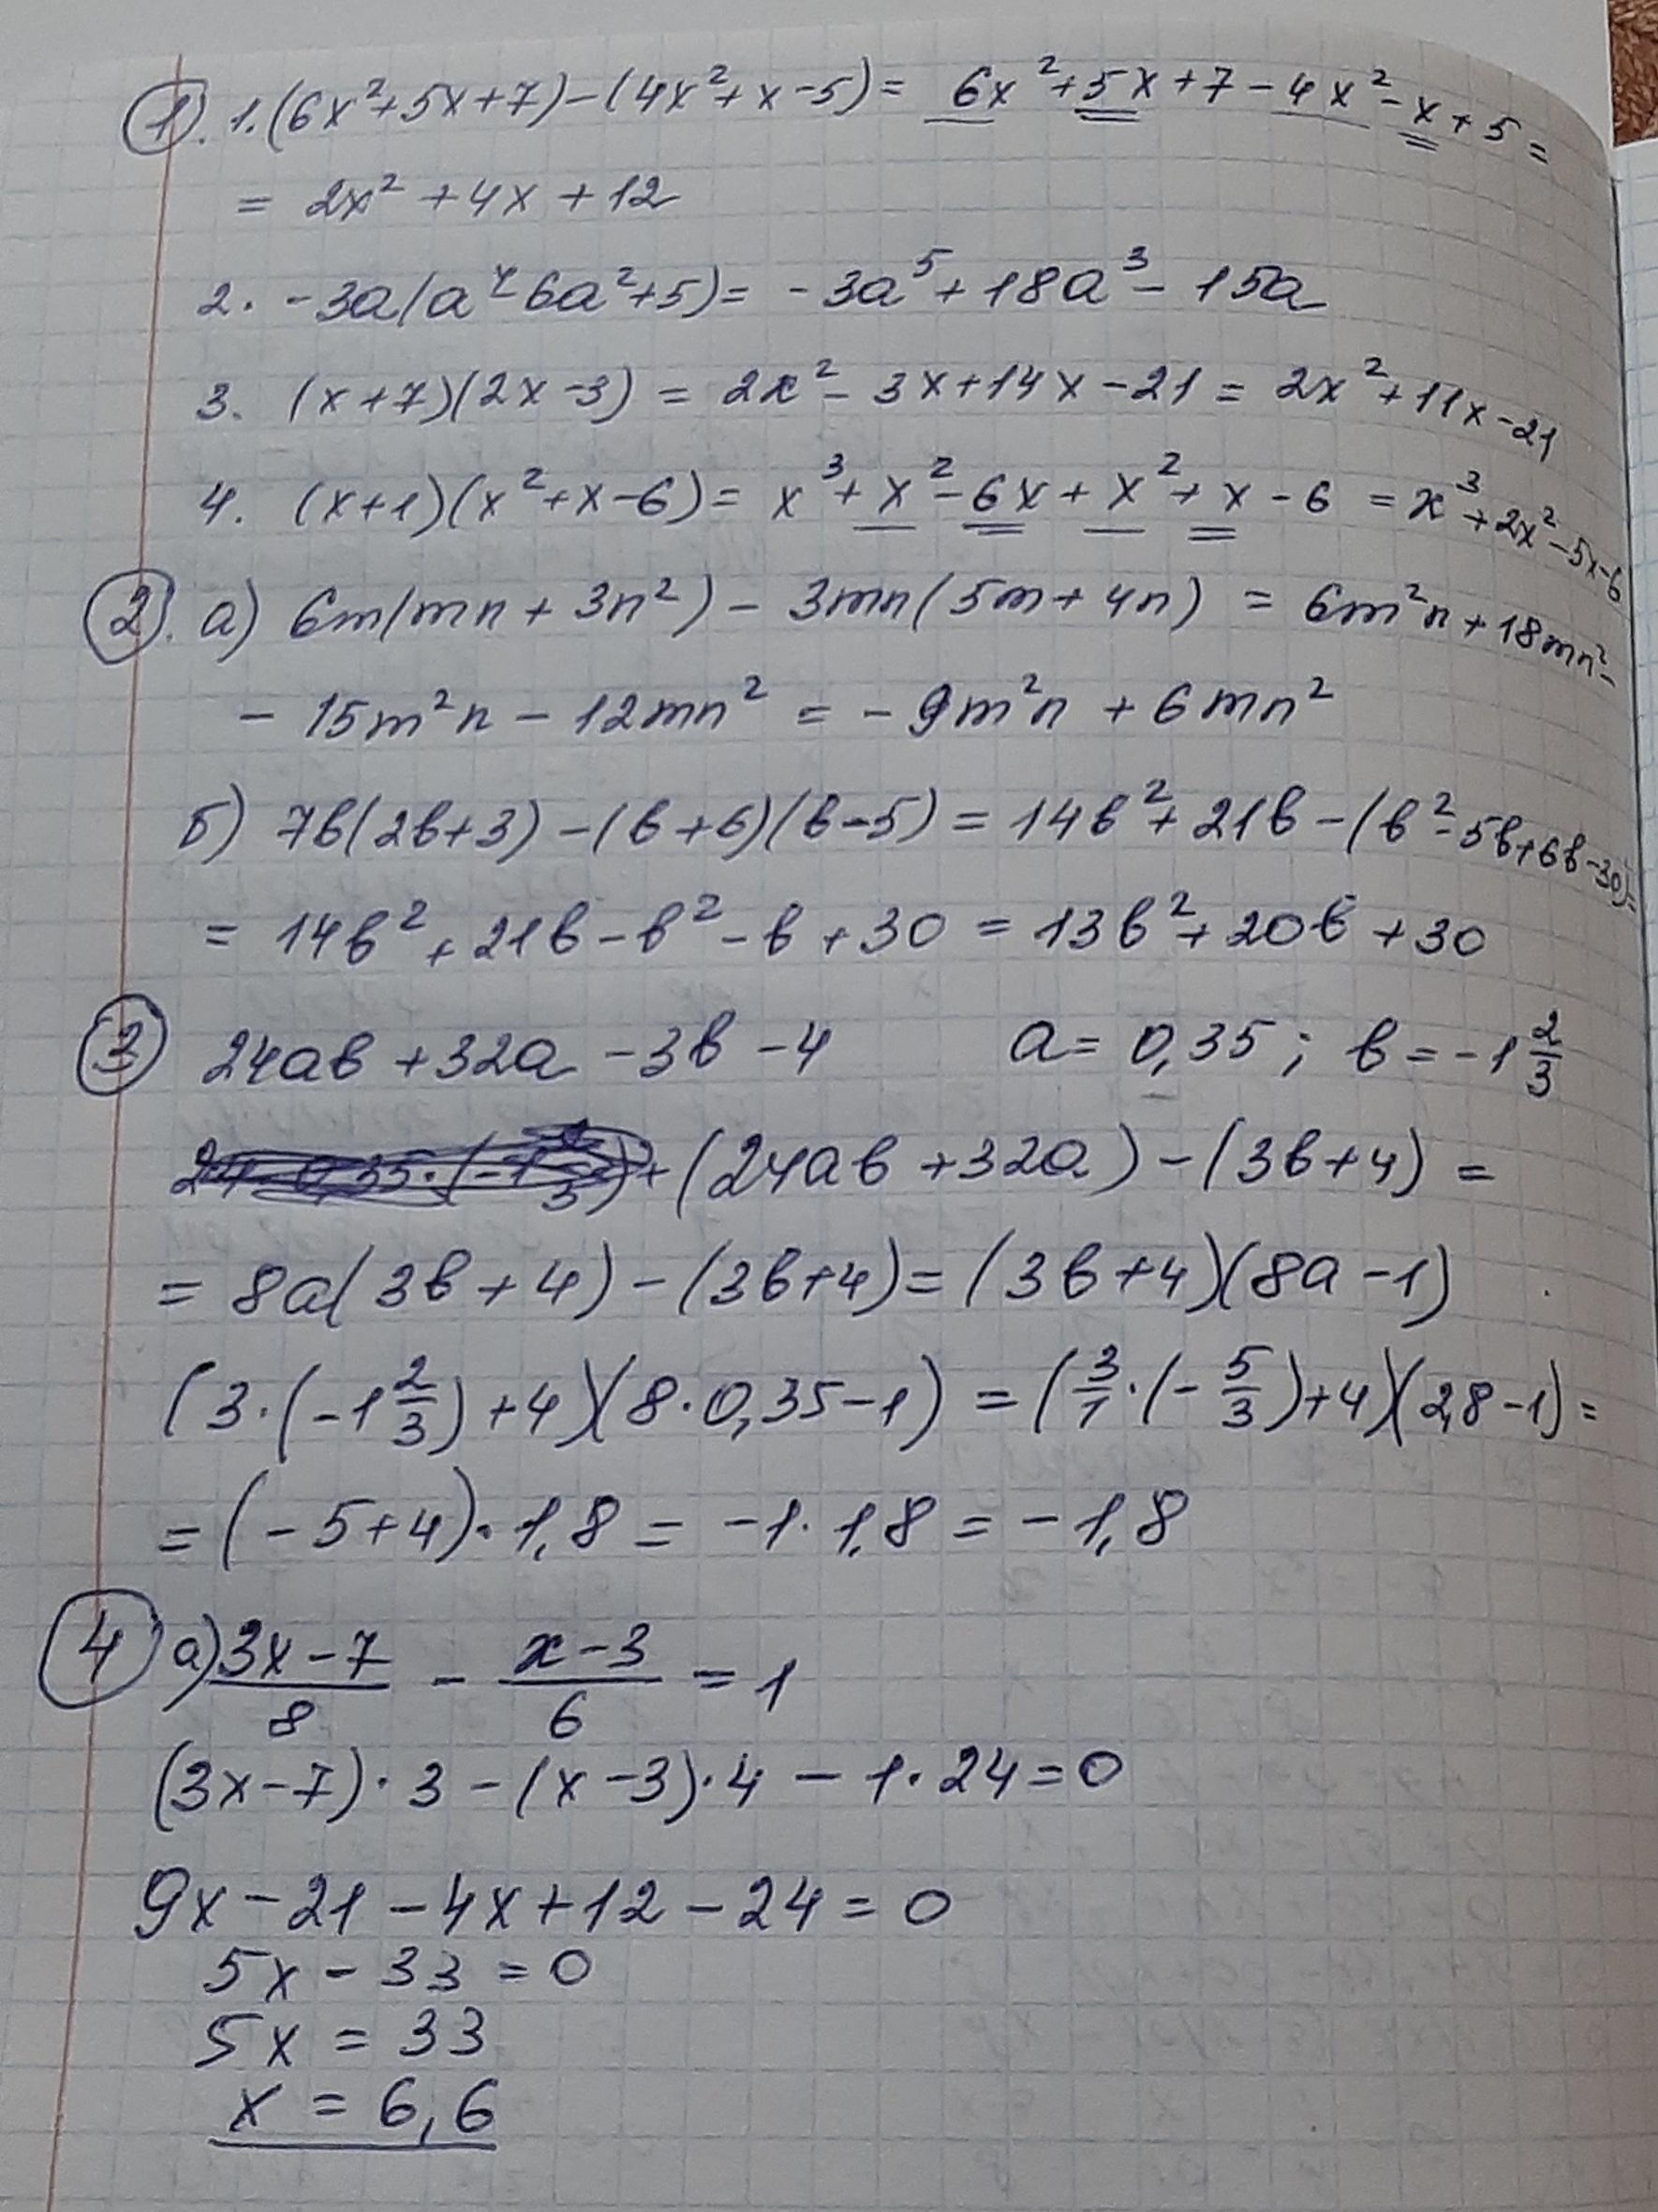 1). 1. (6x²+5x+7)-(4x²+x-5)= 6x²+5x+7-4x²-x+5=
= 2x²+4x+12
2. -3a(a⁴-6a²+5)= -3a⁵+18a³-15a
3. (x+7)(2x-3) = 2x²-3x+14x-21 = 2x²+11x-21
4. (x+1)(x²+x-6)= x³+x²-6x+x²+x-6 = x³+2x²-5x-6
2). а) 6m(mn+3n²)-3mn(5m+4n) = 6m²n+18mn²-
- 15m²n-12mn² = -9m²n+6mn²
б) 7b(2b+3)-(b+6)(b-5)= 14b²+21b-(b²-5b+6b-30)=
= 14b²+21b-b²-b+30 = 13b²+20b+30
3) 24ab+32a-3b-4 a=0,35; b=-1 2/3
(24ab+32a)-(3b+4)=
= 8a(3b+4)-(3b+4)=(3b+4)(8a-1)
(3·(-1 2/3)+4)(8·0,35-1) = (3/1·(-5/3)+4)(2,8-1)=
=(-5+4)·1,8 = -1·1,8 = -1,8
4) а) (3x-7)/8 - (x-3)/6 = 1
(3x-7)·3-(x-3)·4-1·24=0
9x-21-4x+12-24=0
5x-33=0
5x=33
x=6,6